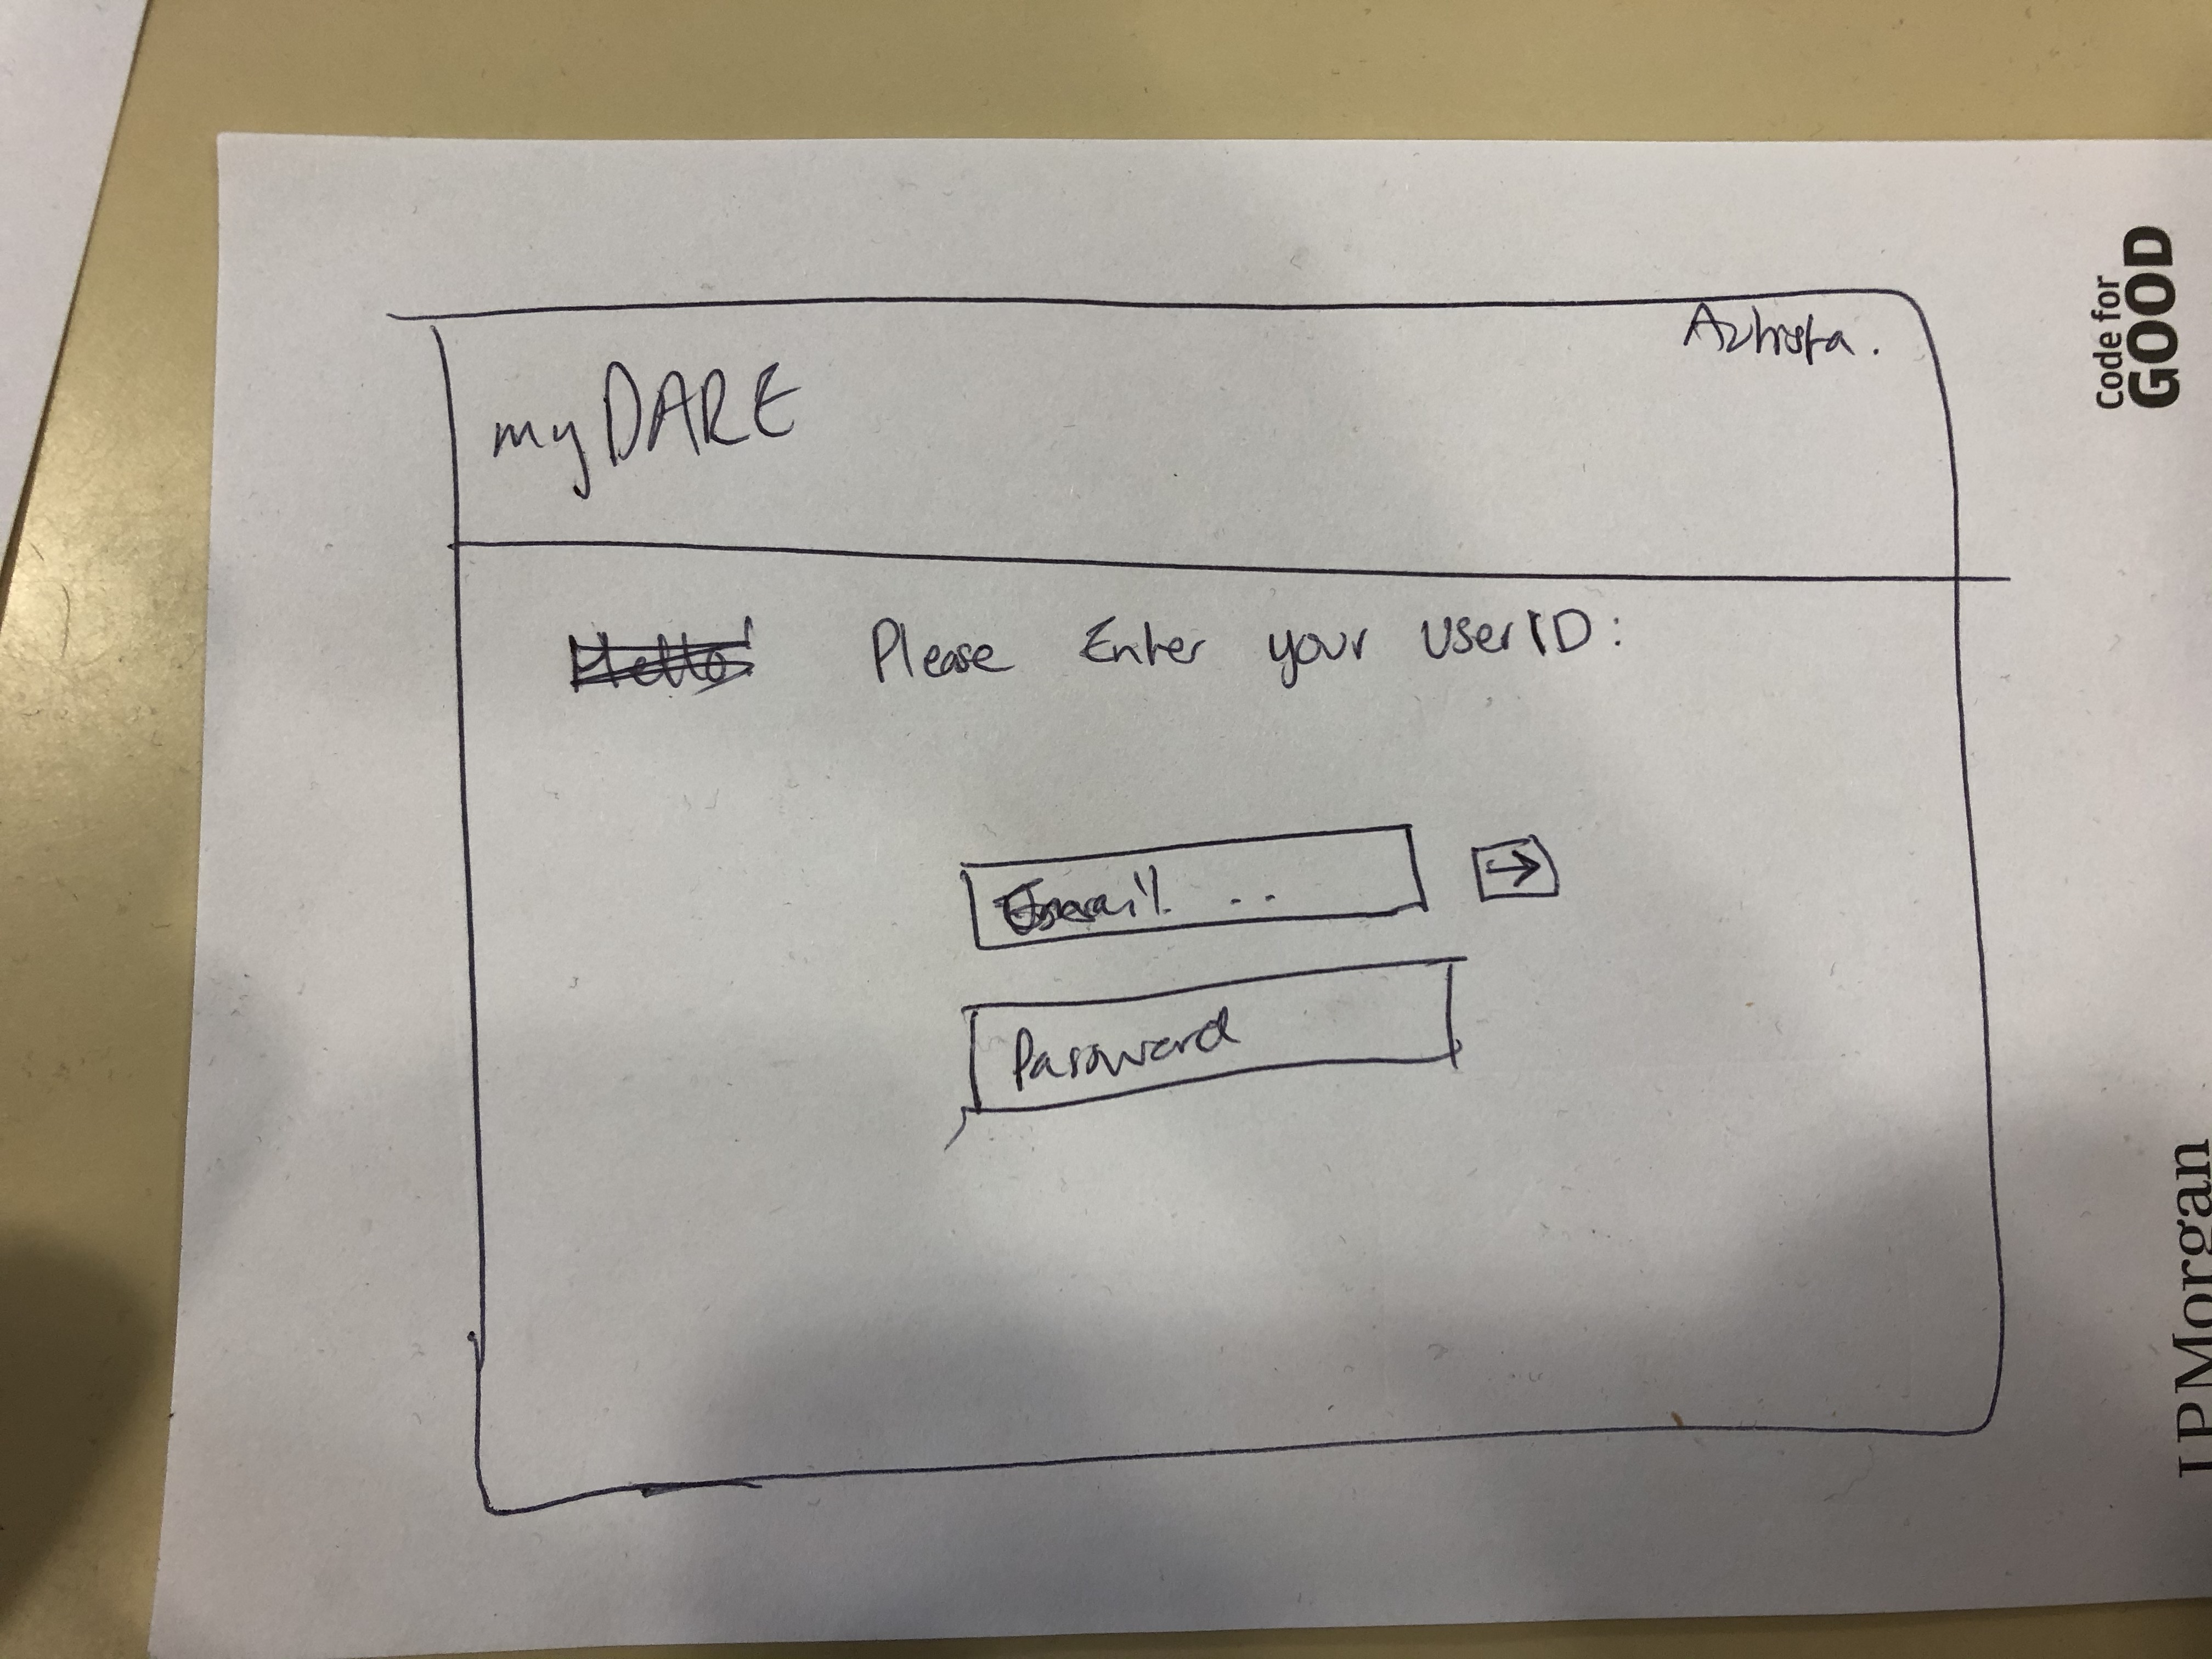 myDARE
Please Enter your UserID:
Email ..
→
Password
Code for
GOOD
J.P.Morgan